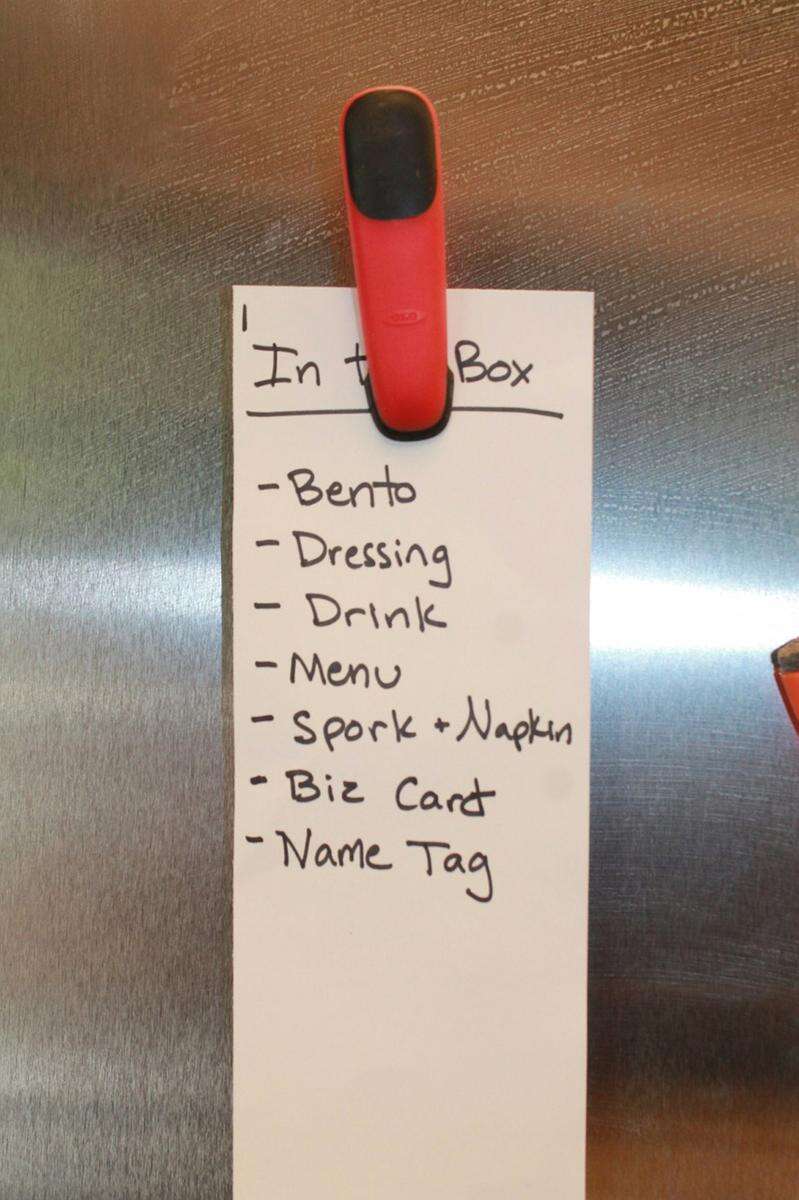 In t Box
- Bento
- Dressing
- Drink
- Menu
- Spork + Napkin
- Biz Card
- Name Tag